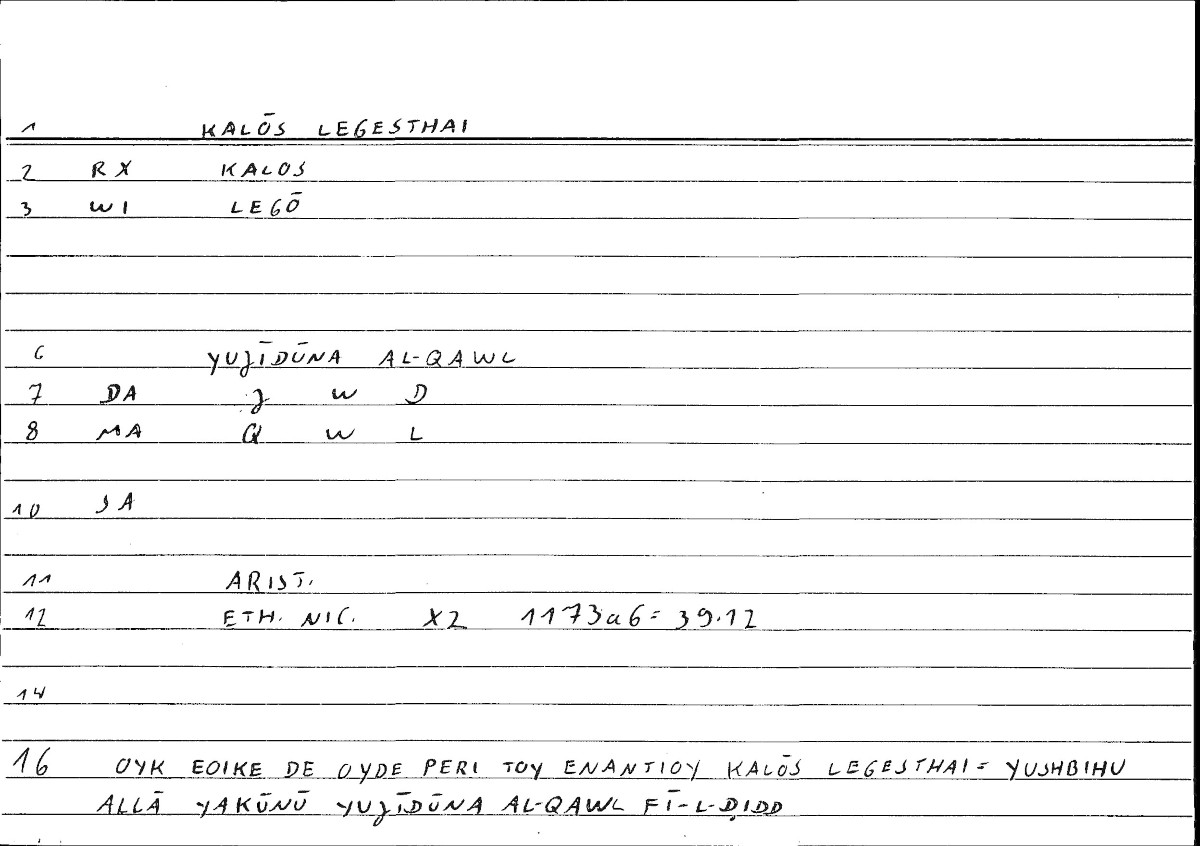 1 KALŌS LEGESTHAI
2 RX KALOS
3 WI LEGŌ
6 YUJĪDŪNA AL-QAWL
7 DA J W D
8 MA Q W L
10 JA
11 ARIST.
12 ETH. NIC. X2 1173a6 = 39.12
14
16 OYK EOIKE DE OYDE PERI TOY ENANTIOY KALŌS LEGESTHAI = YUSHBIHU
ALLĀ YAKŪNŪ YUJĪDŪNA AL-QAWL FĪ-L-ḌIDD